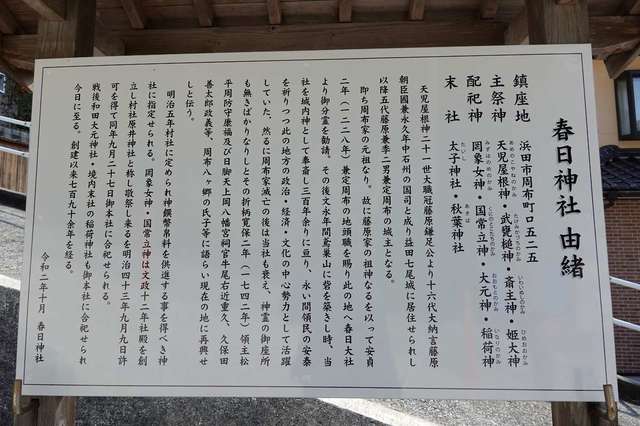 春日神社 由緒
鎮座地 浜田市周布町ロ五二五
主祭神 天児屋根神・武甕槌神・斎主神・姫大神
あめのこやねのかみ たけみかづちのかみ いわいぬしのかみ ひめおおかみ
配祀神 罔象女神・国常立神・大元神・稲荷神
みずはのめのかみ くにのとこたちのかみ おおもとのかみ いなりのかみ
末社 太子神社・秋葉神社
たいし あきば
天児屋根神二十一世大職冠藤原鎌足公より十六代大納言藤原
朝臣國兼永久年中石州の国司と成り益田七尾城に居住せられし
以降五代藤原兼季二男兼定周布の城主となる。
即ち周布家の元祖なり。故に藤原家の祖神なるを以って安貞
二年(一二二八年)兼定周布の地頭職を賜り此の地へ春日大社
より御分霊を勧請、その後文永年間鳶巣山に砦を築きし時、当
社を城内神として奉斎し三百年余りに亘り、永い間領民の安泰
を祈りつつ此の地方の政治・経済・文化の中心勢力として活躍
していた、然るに周布家滅亡の後は当社も衰え、神霊の御座所
も無きばかりなりしとその折柄寛保二年(一七四二年)領主松
平周防守康福及び日脚天上岡八幡宮祠官牛尾右近重久、久保田
善太郎政義等、周布八ヶ郷の氏子等に語らい現在の地に再興せ
しと伝う。
明治五年村社に定められ神饌幣帛料を供進する事を得べき神
社に指定せられる。罔象女神・国常立神は文政十二年社殿を創
立し村社原井神社と称し敬祭し来るを明治四十三年九月九日許
可を得て同年九月二十七日御本社に合祀せられる。
戦後和田大元神社・境内末社の稲荷神社も御本社に合祀せられ
今日に至る。創建以来七百九十余年を経る。
令和二年十月 春日神社